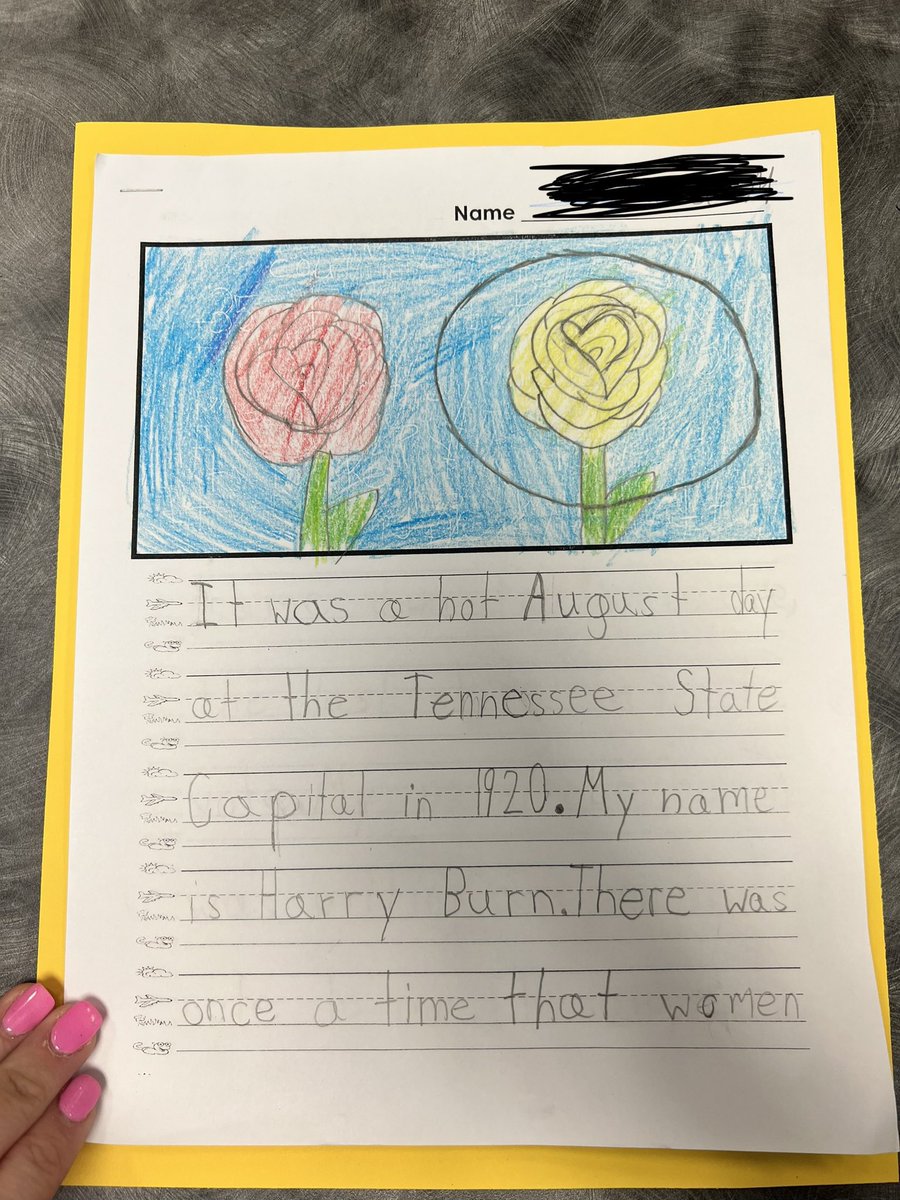 Name
It was a hot August day
at the Tennessee State
Capital in 1920. My name
is Harry Burn. There was
once a time that women